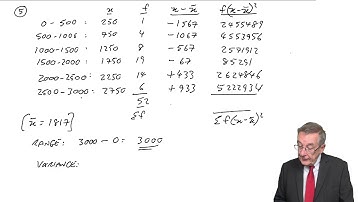 ⑤ x f x - x̄ f(x-x̄)²
0 - 500: 250 1 -1567 2455489
500-1000: 750 4 -1067 4553956
1000-1500: 1250 8 -567 2571912
1500-2000: 1750 19 -67 85291
2000-2500: 2250 14 +433 2624846
2500-3000: 2750 6 +933 5222934
52
[x̄ = 1817] Σf Σf(x-x̄)²
RANGE: 3000 - 0 = 3000
VARIANCE: